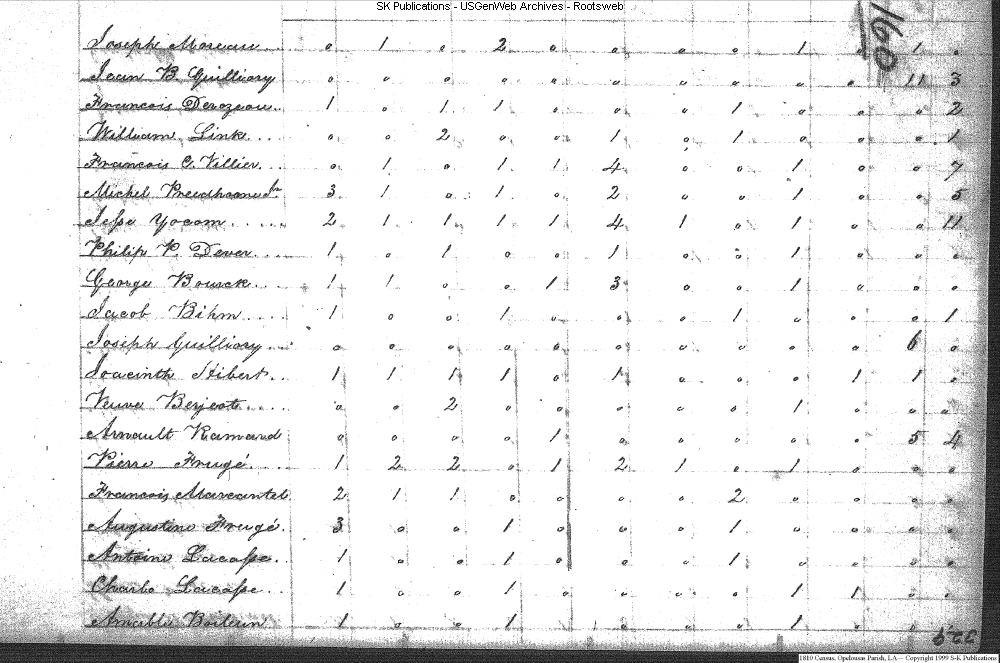 SK Publications - USGenWeb Archives - Rootsweb
160
Joseph Moreau 0 1 0 2 0 0 0 0 1 0 1 0
Jean B Guilliory 0 0 0 0 0 0 0 0 0 0 11 3
Francois Devezeau 1 0 1 1 0 0 0 1 0 0 0 2
William Link 0 0 2 0 0 1 0 1 0 0 0 1
Francois C. Villier 0 1 0 1 1 4 0 0 1 0 0 7
Michel 3 1 0 1 0 2 0 0 1 0 0 5
Jesse Yocom 2 1 1 1 1 4 1 0 1 0 0 11
Philip P. Dever 1 0 1 0 0 1 0 0 1 0 0 0
George Bourck 1 1 0 0 1 3 0 0 1 0 0 0
Jacob Bihm 1 0 0 1 0 0 0 1 0 0 0 1
Joseph Guilliory 0 0 0 0 0 0 0 0 0 0 6 0
Joacinth Hibert 1 1 1 1 0 1 0 0 0 1 1 0
Veuve Berjeote 0 0 2 0 0 0 0 0 1 0 0 0
Arnault Ramard 0 0 0 0 1 0 0 0 0 0 5 4
Pierre Frugé 1 2 2 0 1 2 1 0 1 0 0 0
Francois Marcantel 2 1 1 0 0 0 0 2 0 0 0 0
Augustine Frugé 3 0 0 1 0 0 0 1 0 0 0 0
Antoine Lacasse 1 0 0 1 0 0 0 1 0 0 0 0
Charlo Lacasse 1 0 0 1 0 0 0 0 1 1 0 0
Amable Boileun 1 0 0 1 0 0 0 0 1 0 0 0
1810 Census, Opelousas Parish, LA-- Copyright 1999 S-K Publications